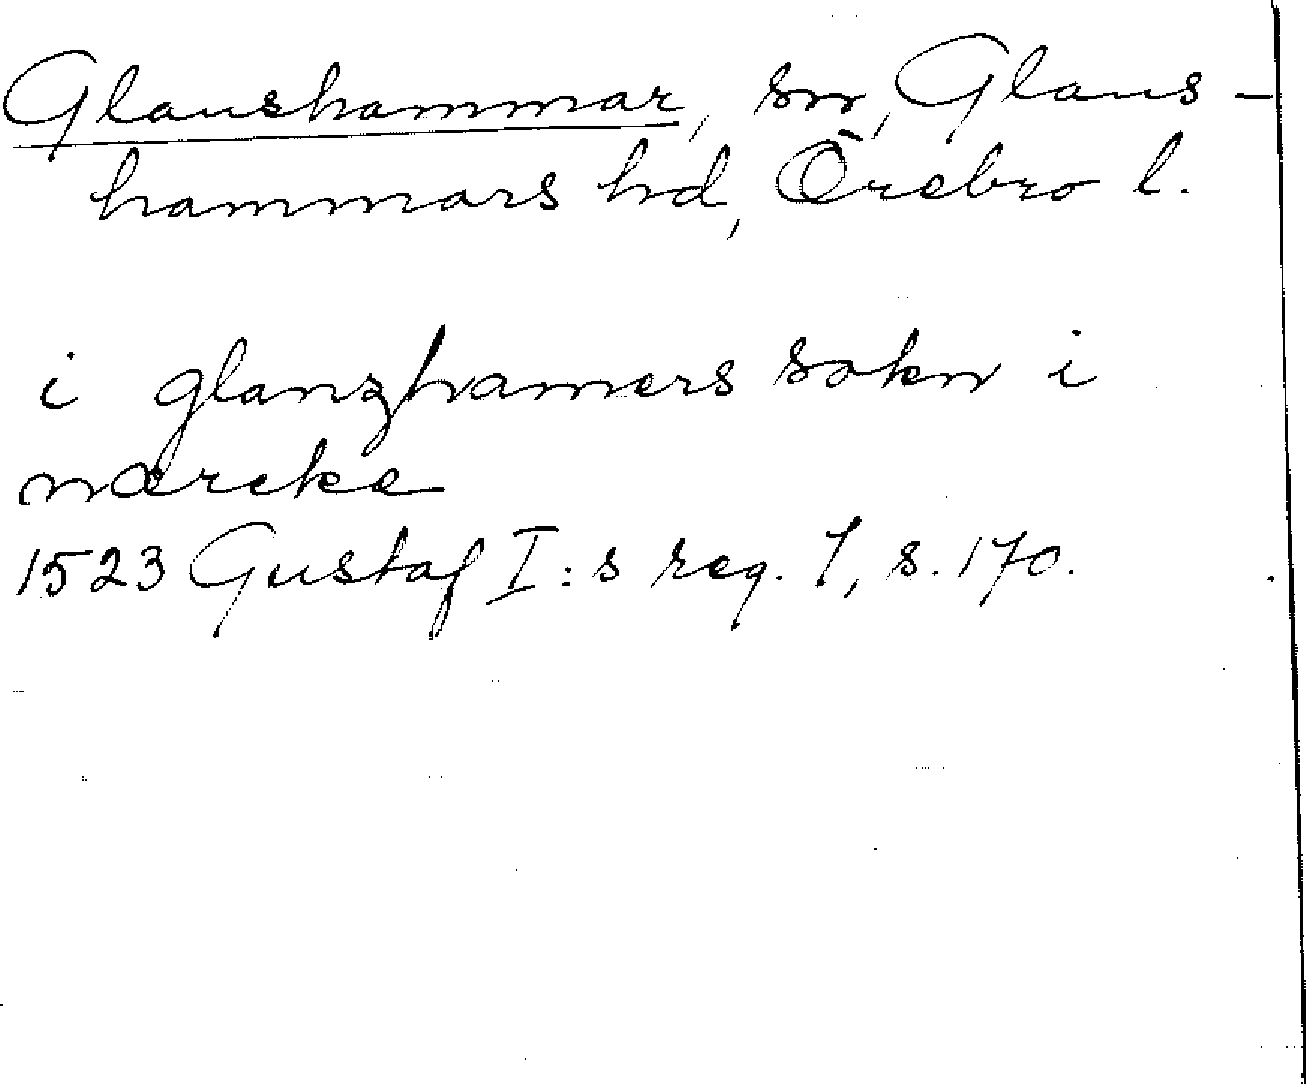 Glanshammar, sn, Glans-
hammars hd, Örebro l.
i glanzhamers sokn i
närcke
1523 Gustaf I:s reg. 1, s. 170.